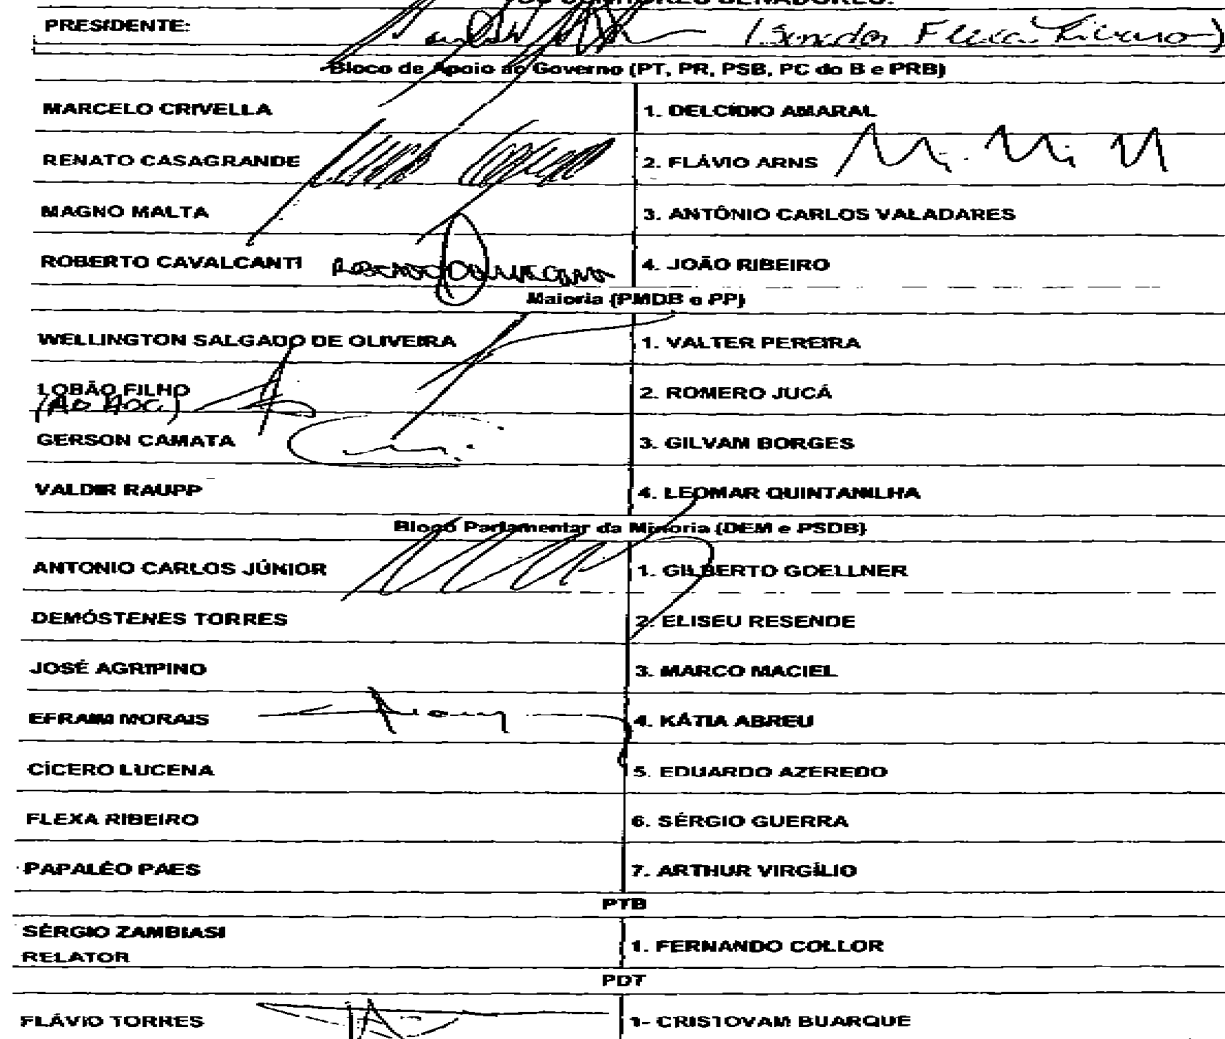 OS SENHORES SENADORES:
PRESIDENTE: (Senador Flexa Ribeiro)
Bloco de Apoio ao Governo (PT, PR, PSB, PC do B e PRB)
MARCELO CRIVELLA 1. DELCÍDIO AMARAL
RENATO CASAGRANDE 2. FLÁVIO ARNS
MAGNO MALTA 3. ANTÔNIO CARLOS VALADARES
ROBERTO CAVALCANTI 4. JOÃO RIBEIRO
Maioria (PMDB e PP)
WELLINGTON SALGADO DE OLIVEIRA 1. VALTER PEREIRA
LOBÃO FILHO 2. ROMERO JUCÁ
(AD HOC)
GERSON CAMATA 3. GILVAM BORGES
VALDIR RAUPP 4. LEOMAR QUINTANILHA
Bloco Parlamentar da Minoria (DEM e PSDB)
ANTONIO CARLOS JÚNIOR 1. GILBERTO GOELLNER
DEMÓSTENES TORRES 2. ELISEU RESENDE
JOSÉ AGRIPINO 3. MARCO MACIEL
EFRAIM MORAIS 4. KÁTIA ABREU
CÍCERO LUCENA 5. EDUARDO AZEREDO
FLEXA RIBEIRO 6. SÉRGIO GUERRA
PAPALÉO PAES 7. ARTHUR VIRGÍLIO
PTB
SÉRGIO ZAMBIASI 1. FERNANDO COLLOR
RELATOR
PDT
FLÁVIO TORRES 1- CRISTOVAM BUARQUE